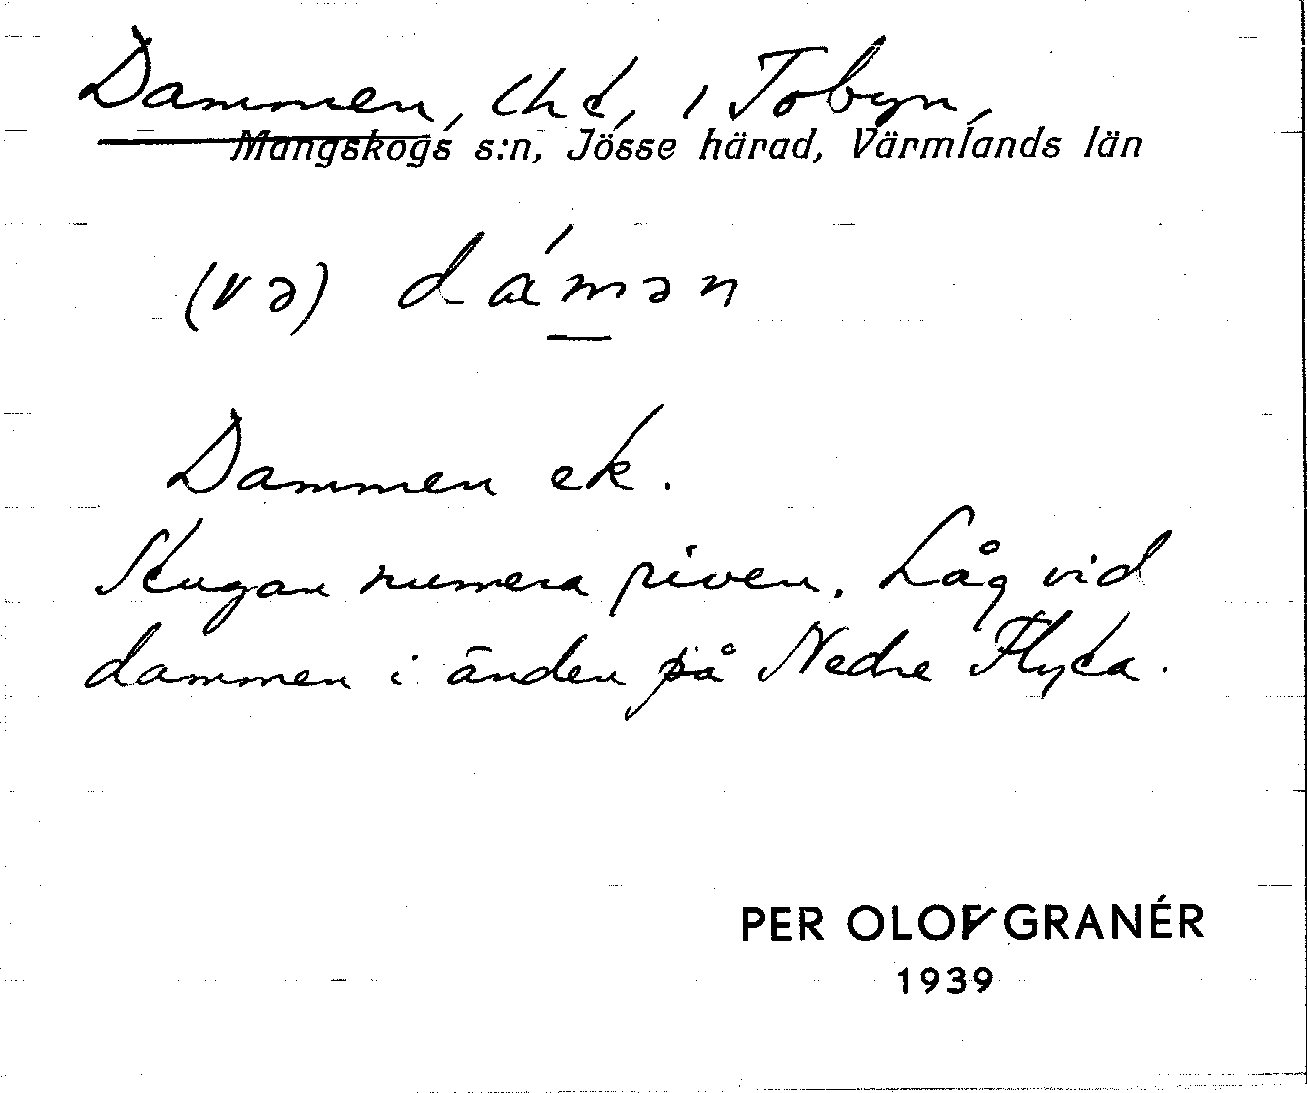 Dammen, lht, i Tobyn,
Mangskogs s:n, Jösse härad, Värmlands län
(və) dámən
Dammen ek.
Stugan numera riven. Låg vid
dammen i änden på Nedre Flyta.
PER OLOF GRANÉR
1939